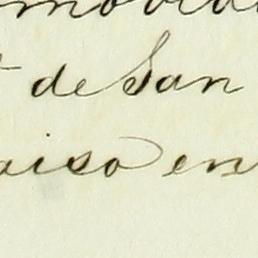 de San
aiso en